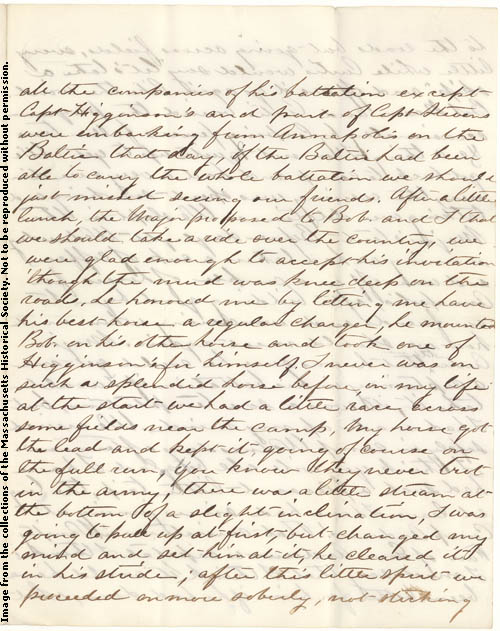 all the companies of his battalion except
Capt Higginson's and part of Capt Stevens
were embarking from Annapolis on the
Baltic that day, if the Baltic had been
able to carry the whole battalion we should
just missed seeing our friends. After a little
lunch, the Major proposed to Bob and I that
we should take a ride over the country, we
were glad enough to accept his invitation
though the mud was knee deep on the
roads, he honored me by letting me have
his best horse a regular charger, he mounted
Bob on his other horse and took one of
Higginson's for himself, I never was on
such a splendid horse before in my life
at the start we had a little race across
some fields near the camp, my horse got
the lead and kept it, going of course on
the full run, you know they never trot
in the army, there was a little stream at
the bottom of a slight inclination, I was
going to pull up at first, but changed my
mind and set him at it, he cleared it
in his stride; after this little spirt we
proceeded on more soberly, not sticking
Image from the collections of the Massachusetts Historical Society. Not to be reproduced without permission.